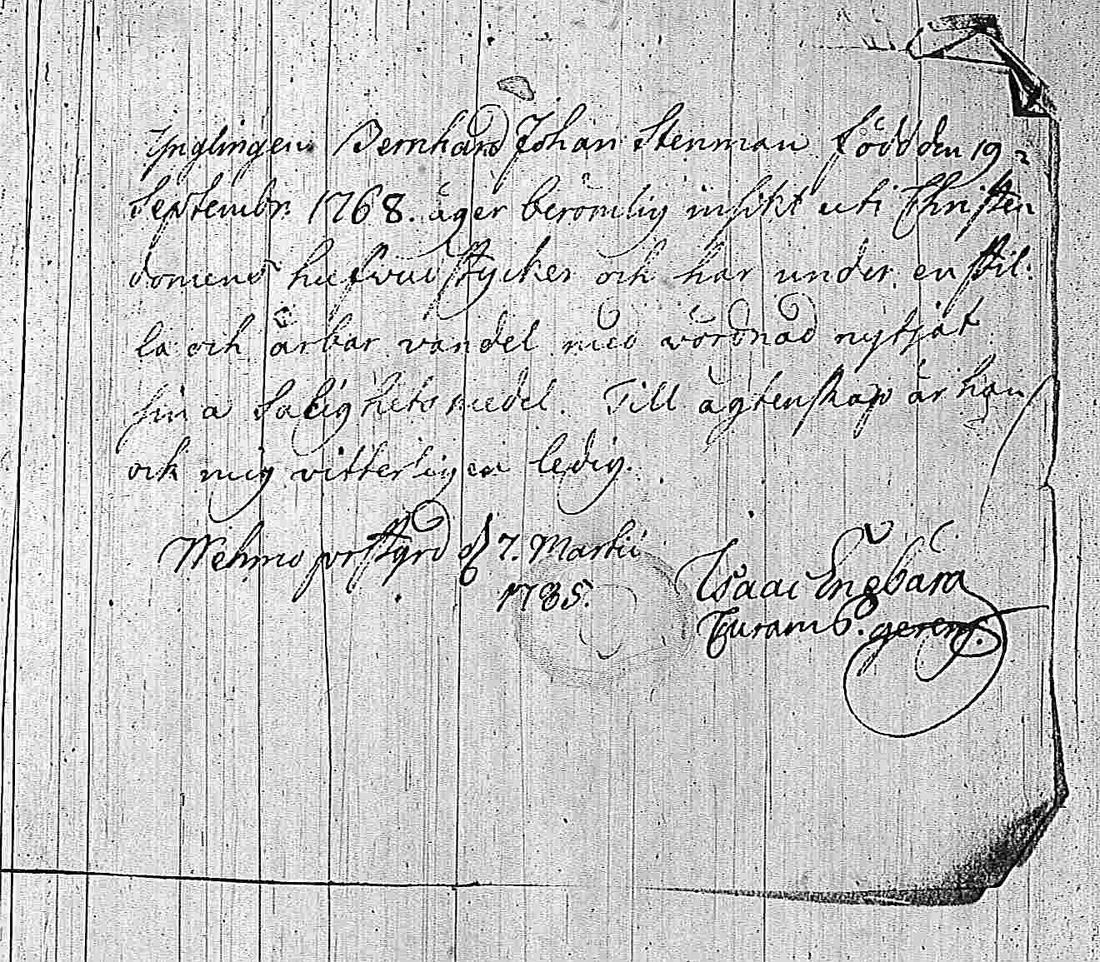 Ynglingen Bernhard Johan Stenman född den 19
Septembr. 1768. äger berömlig insikt uti Christen
domens hufvudstycker och har under en stil-
la och ärbar vandel med vördnad nyttjat
sina Salighetsmedel. Till ägtenskap är han
och mig vitterligen ledig.
Wehmo prestgrd d 7. Martii
1785.
Isaac Engbärg
Curam P. gerens.